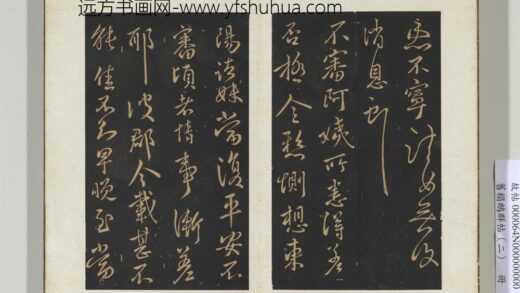 远方书画网- www.yfshuhua.com
不寧無復
消息
不審阿姨所患得差
否極令懸惻想東
陽諸妹當復平安不
審頃者情事漸差
耶彼郡今載甚不
能佳不知早晚至當
故帖 000064N000000000
舊搨鵝群帖(二) 冊